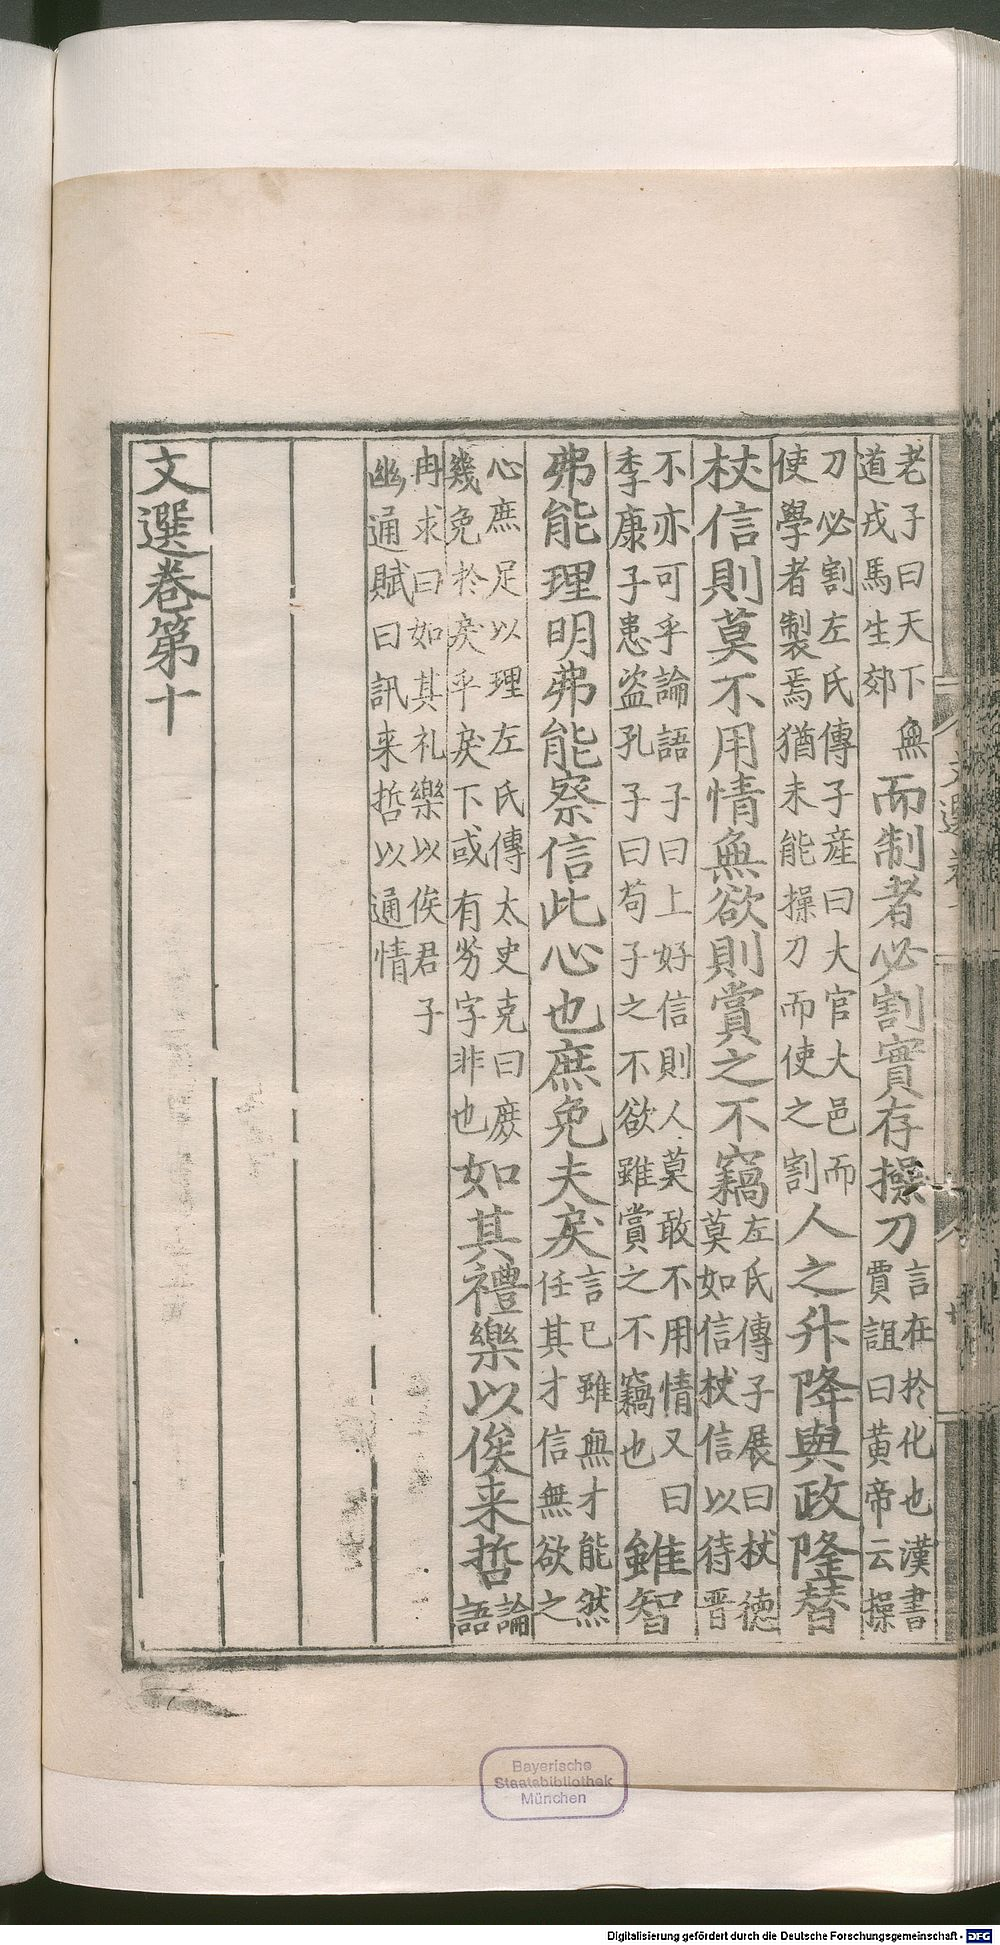 老子曰天下無
道戎馬生郊
而制者必割實存操刀
言在於化也漢書
賈誼曰黄帝云操
刀必割左氏傳子産曰大官大邑而
使學者製焉猶未能操刀而使之割
人之升降與政隆替
杖信則莫不用情無欲則賞之不竊
左氏傳子展曰杖德
莫如信杖信以待晋
不亦可乎論語子曰上好信則人莫敢不用情又曰
季康子患盗孔子曰苟子之不欲雖賞之不竊也
雖智
弗能理明弗能察信此心也庶免夫戾
言已雖無才能然
任其才信無欲之
心庶足以理左氏傳太史克曰庶
幾免於戾乎戾下或有劣字非也
如其禮樂以俟来哲
論
語
冉求曰如其礼樂以俟君子
幽通賦曰訊来哲以通情
文選卷第十
Bayerische
Staatsbibliothek
München
Digitalisierung gefördert durch die Deutsche Forschungsgemeinschaft - DFG